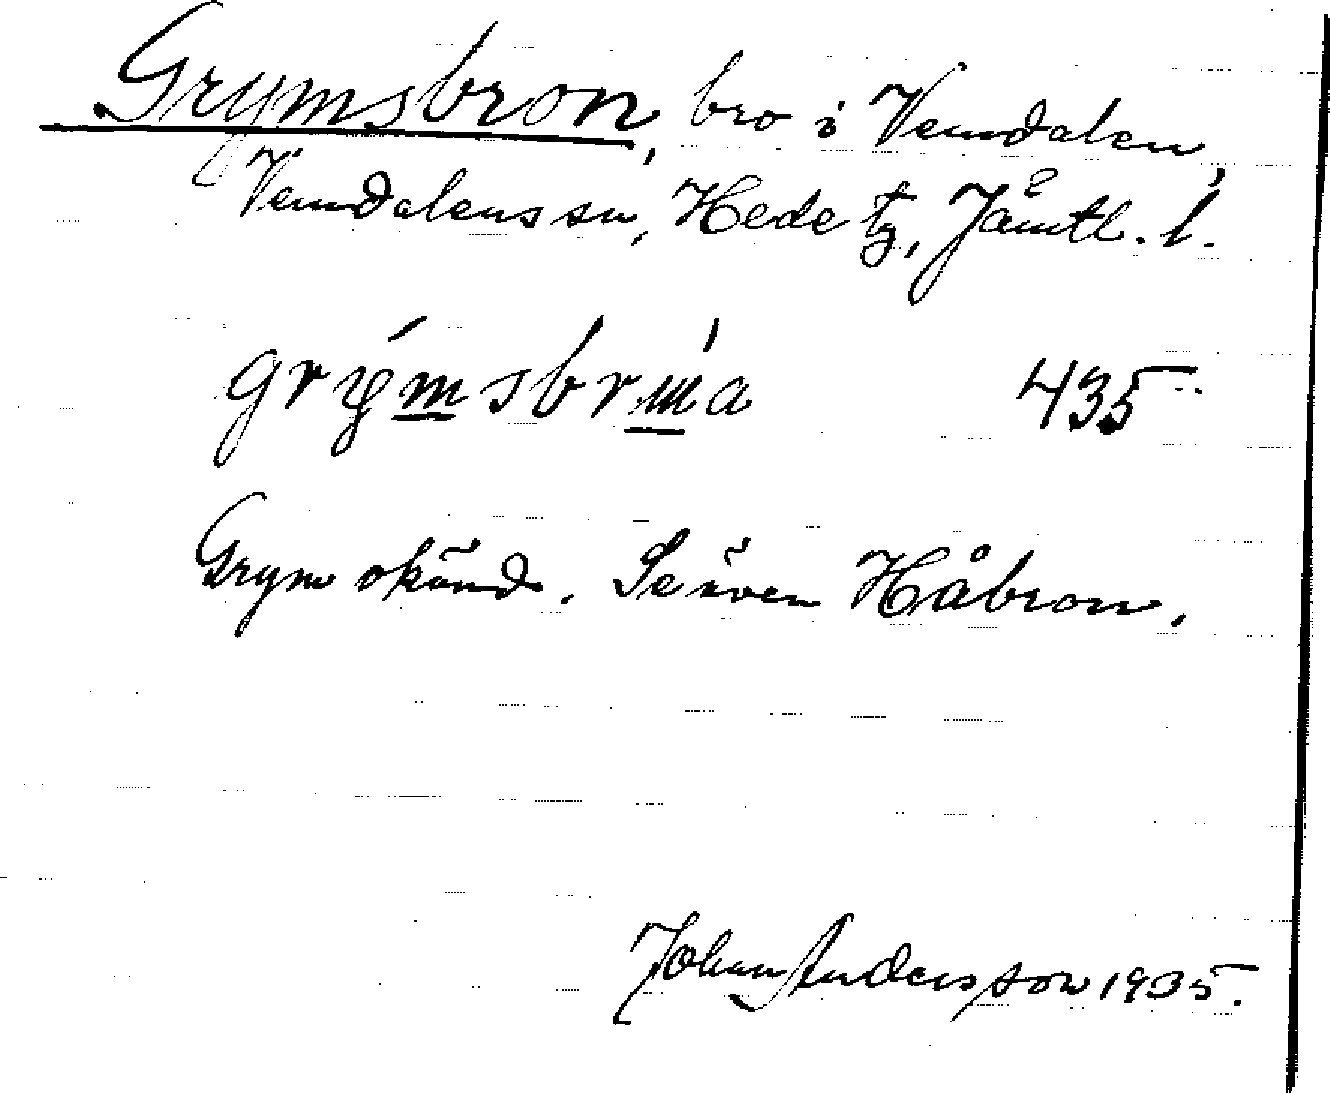 Grymsbron, bro i Vemdalen,
Vemdalens sn, Hede tg, Jämtl. l.
grýmsbrɯ́a 435.
Grym okänd. Se även Håbron.
Johan Andersson 1935.